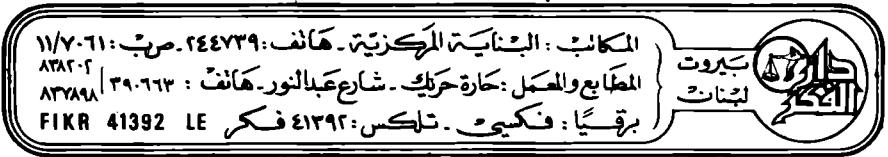 دار الفكر
بيروت
لبنان
المكاتب : البناية المركزية ـ هاتف : ٢٤٤٧٣٩ ـ ص ب : ١١/٧٠٦١
المطابع والمعمل : حارة حريك ـ شارع عبدالنور ـ هاتف : ٣٩٠٦٦٣ / ٨٣٨٢٠٢
٨٣٧٨٩٨
برقيًا : فكسي ـ تلكس : ٤١٣٩٢ فكر FIKR 41392 LE